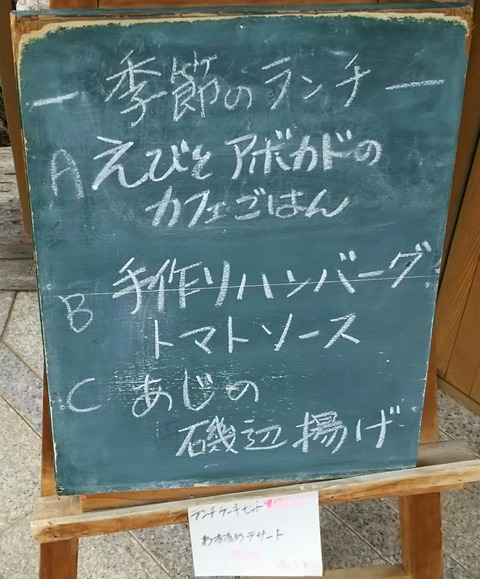 ― 季節のランチ ―
A えびとアボカドの
カフェごはん
B 手作りハンバーグ
トマトソース
C あじの
磯辺揚げ
ランチケーキセット
おすすめデザート